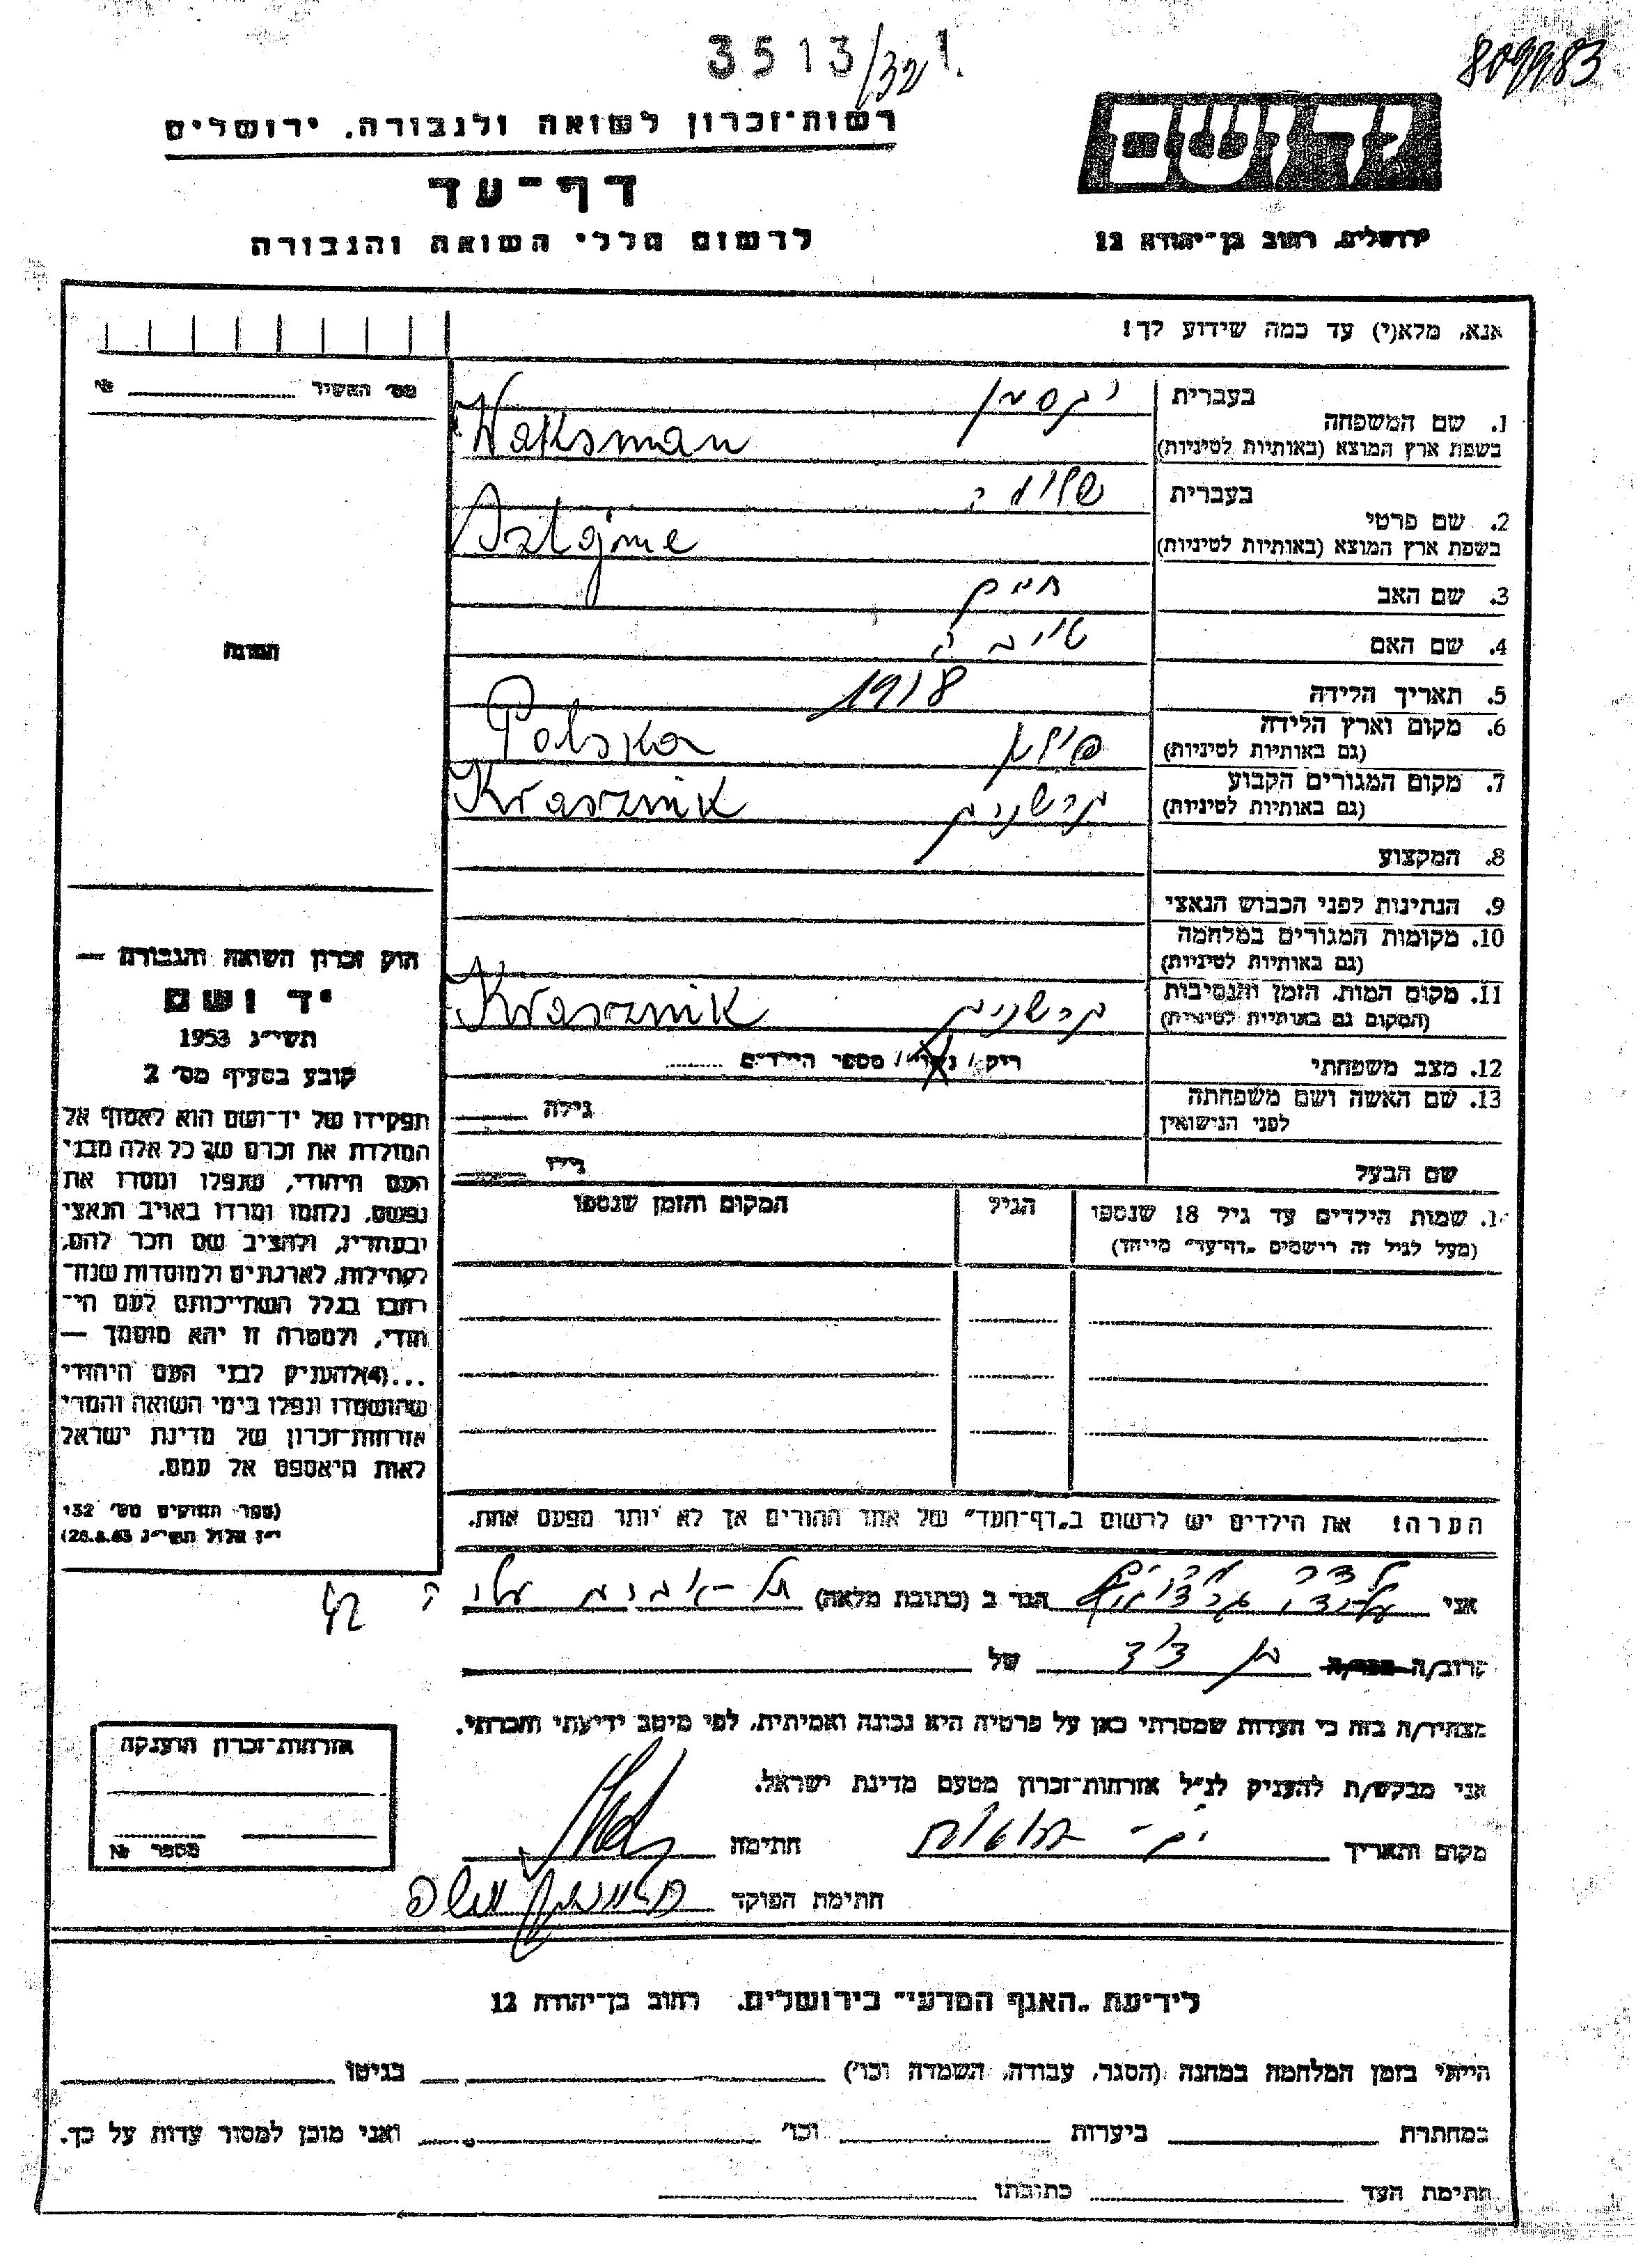 3513/321
809983
רשות־זכרון לשואה ולגבורה. ירושלים
דף־עד
לרשום חללי השואה והגבורה
יד ושם
ירושלים, רחוב בן־יהודה 12
אנא, מלא(י) עד כמה שידוע לך!
מס' התשיר № 
בעברית וקסמן
1. שם המשפחה
בשפת ארץ המוצא (באותיות לטיניות) Waksman
בעברית שלומה
2. שם פרטי
בשפת ארץ המוצא (באותיות לטיניות) Szlojme
3. שם האב חיים
4. שם האם טויבה
5. תאריך הלידה 1918
6. מקום וארץ הלידה
(גם באותיות לטיניות) פולין Polska
7. מקום המגורים הקבוע
(גם באותיות לטיניות) קרשניק Krasznik
8. המקצוע
9. הנתינות לפני הכבוש הנאצי
10. מקומות המגורים במלחמה
(גם באותיות לטיניות)
11. מקום המות, הזמן והנסיבות
(המקום גם באותיות לטיניות) קרשניק Krasznik
12. מצב משפחתי רוק / נשוי / מספר הילדים
13. שם האשה ושם משפחתה
לפני הנישואין גילה
שם הבעל גילו
14. שמות הילדים עד גיל 18 שנספו
(מעל לגיל זה רושמים "דף־עד" מיוחד)
הגיל
המקום והזמן שנספו
תמונה
חוק זכרון השואה והגבורה —
יד ושם
תשי"ג 1953
קובע בסעיף מס' 2
תפקידו של יד־ושם הוא לאסוף אל
המולדת את זכרם של כל אלה מבני
העם היהודי, שנפלו ומסרו את
נפשם, נלחמו ומרדו באויב הנאצי
ובעוזריו, ולהציב שם וזכר להם,
לקהילות, לארגונים ולמוסדות שנח־
רבו בגלל השתייכותם לעם היה־
ודי, ולמטרה זו יהא מוסמך —
...(4) להעניק לבני העם היהודי
שהושמדו ונפלו בימי השואה והמרי
אזרחות־זכרון של מדינת ישראל
לאות היאספם אל עמם.
(ספר החוקים מס' 132
י"ז אלול תשי"ג 28.8.53)
הערה! את הילדים יש לרשום ב"דף־העד" של אחד ההורים אך לא יותר מפעם אחת.
אני הגר ב (כתובת מלאה) תל-אביב
קרוב/ה מכר/ה בן דוד של
מצהיר/ה בזה כי העדות שמסרתי כאן על פרטיה היא נכונה ואמיתית, לפי מיטב ידיעתי והכרתי.
אני מבקש/ת להעניק לנ"ל אזרחות־זכרון מטעם מדינת ישראל.
מקום ותאריך חתימה
חתימת הפוקד
אזרחות־זכרון הוענקה
מספר №
לידיעת "האגף המדעי" בירושלים. רחוב בן־יהודה 12
הייתי בזמן המלחמה במחנה (הסגר, עבודה, השמדה וכו') בגיטו
במחתרת ביערות וכו' ואני מוכן למסור עדות על כך.
חתימת העד כתובתו